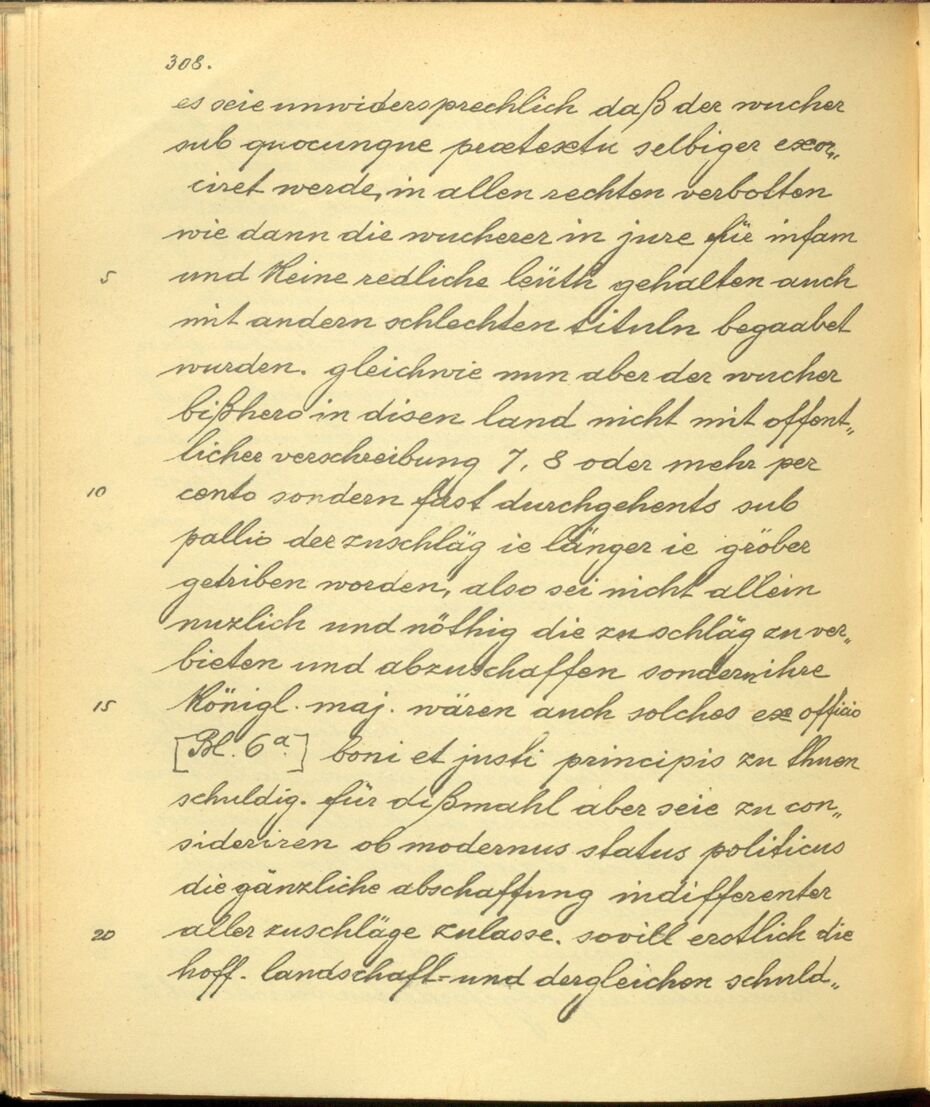 308.
es seie unwidersprechlich daß der wucher
sub quocunque praetextu selbiger exor„
ciret werde, in allen rechten verbotten
wie dann die wucherer in jure für infam
5 und Keine redliche leüth gehalten auch
mit andern schlechten tituln begaabet
wurden. gleichwie nun aber der wucher
bißhero in disen land nicht mit offent„
licher verschreibung 7, 8 oder mehr per
10 cento sondern fast durchgehents sub
pallio der zuschläg ie länger ie gröber
getriben worden, also sei nicht allein
nuzlich und nöthig die zuschläg zu ver„
bieten und abzuschaffen sondern ihre
15 Königl. maj. wären auch solches ex officio
[Bl. 6a.] boni et justi principis zu thuen
schuldig. für dißmahl aber seie zu con„
sideriren ob modernus status politicus
die gänzliche abschaffung indifferenter
20 aller zuschläge zulasse. sovill erstlich die
hoff- landschaft- und dergleichen schuld„